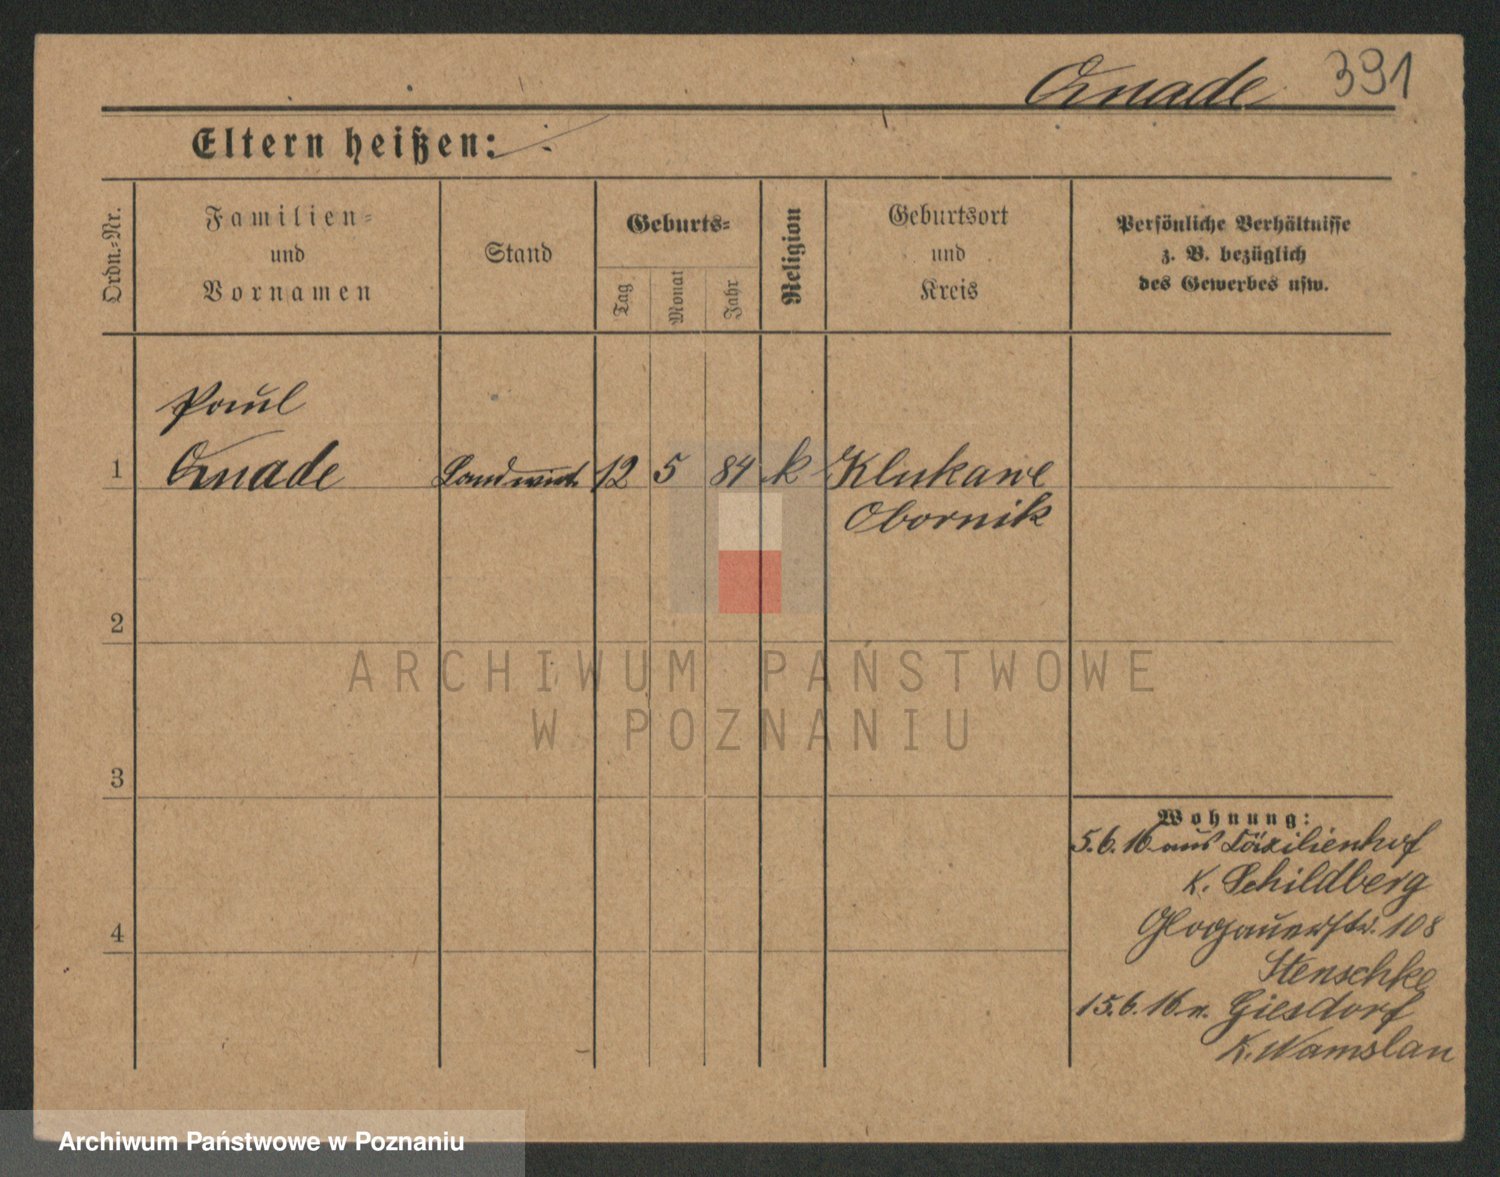 Qnade 391
Eltern heißen:
Ordn.-Nr.
Familien-
und
Vornamen
Stand
Geburts-
Tag
Monat
Jahr
Religion
Geburtsort
und
Kreis
Persönliche Verhältnisse
z. B. bezüglich
des Gewerbes usw.
Paul
1 Qnade Landwirt 12 5 84 k Klukawe
Obornik
2
3
4
Wohnung:
5.6.16 aus Cäzilienhof
K. Schildberg
Glogauerstr. 108
Stenschke
15.6.16 n. Giesdorf
K. Namslau
ARCHIWUM PAŃSTWOWE
W POZNANIU
Archiwum Państwowe w Poznaniu